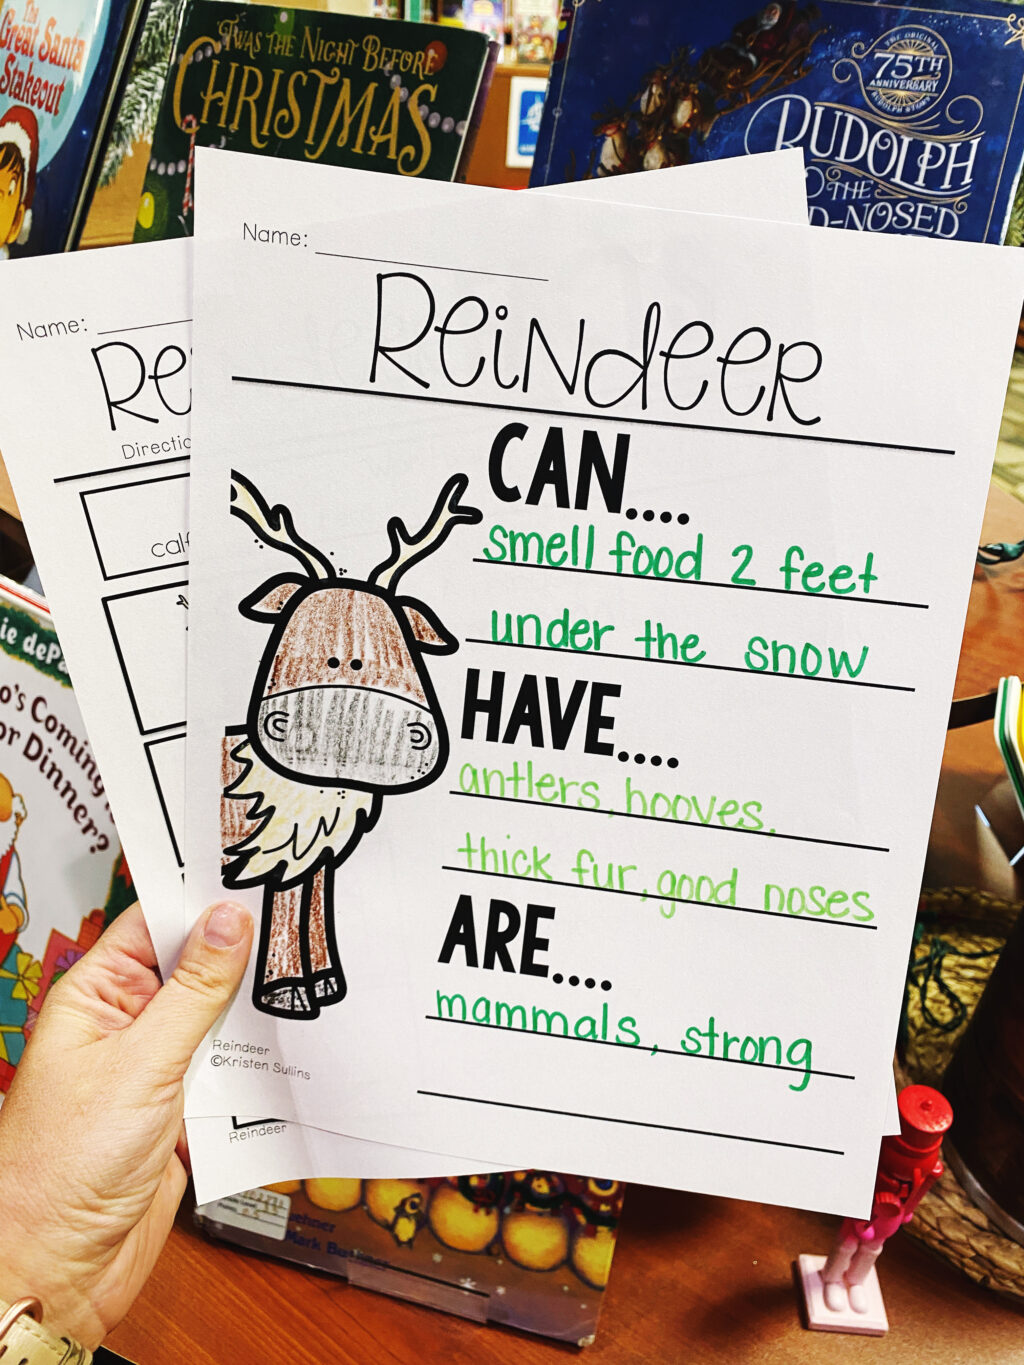 The Great Santa Stakeout
'TWAS THE NIGHT BEFORE
CHRISTMAS
THE ORIGINAL
75TH
ANNIVERSARY
RUDOLPH STORY
RUDOLPH
THE
D-NOSED
Name:
Reindeer
CAN....
smell food 2 feet
under the snow
HAVE....
antlers, hooves,
thick fur, good noses
ARE....
mammals, strong
Reindeer
©Kristen Sullins
Name:
Re
Directio
calf
Reindeer
ie dePa
o's Coming
or Dinner?
ehner
Mark Bu